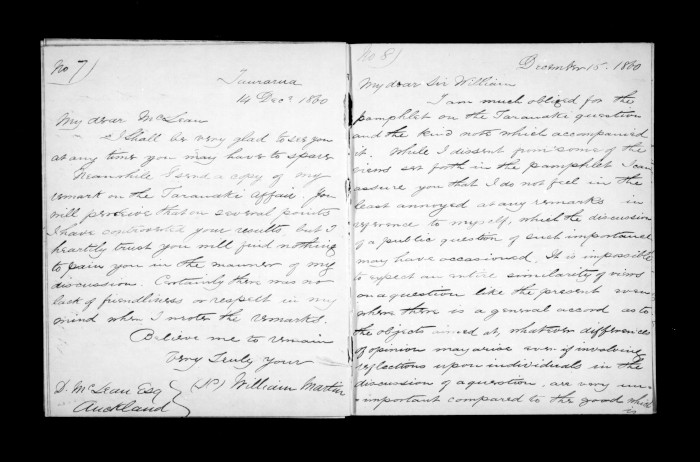 No 7)
Taurarua
14 Decr 1860
My dear McLean
I shall be very glad to see you
at any time you may have to spare
Meanwhile I send a copy of my
remark on the Taranaki affair. You
will perceive that on several points
I have controverted your results but I
heartily trust you will find nothing
to pain you in the manner of my
discussion. Certainly there was no
lack of friendliness or respect in my
mind when I wrote the remarks.
Believe me to remain
Very truly your
D. McLean Esq
Auckland
William Martin
No 8)
December 15. 1860
My dear Sir William
I am much obliged for the
pamphlet on the Taranaki question
and the kind note which accompanied
it. While I dissent from some of the
views set forth in the pamphlet I can
assure you that I do not feel in the
least annoyed at any remarks in
reference to myself, which the discussion
of a public question of such importance
may have occasioned. It is impossible
to expect an entire similarity of views
on a question like the present even
where there is a general accord as to
the objects aimed at, whatever difference
of opinion may arise even if involving
reflections upon individuals in the
discussion of a question, are very un-
important compared to the good which
is